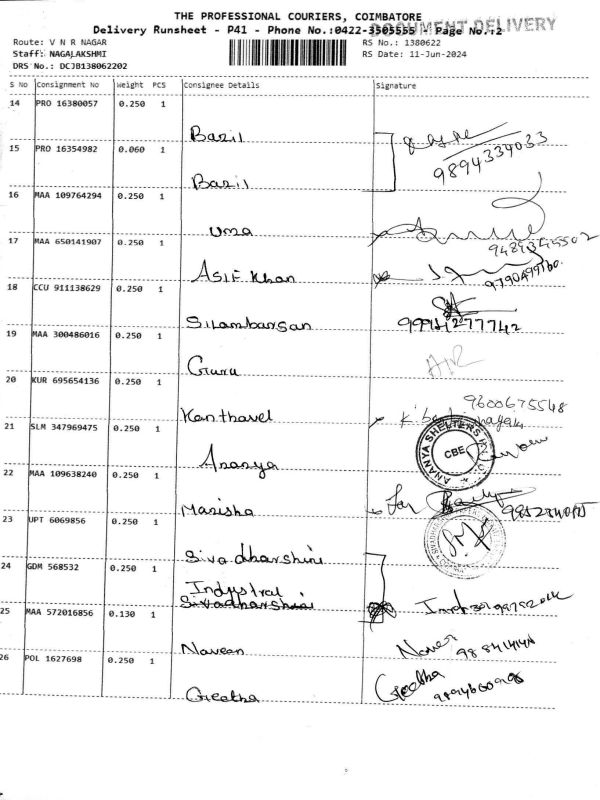 THE PROFESSIONAL COURIERS, COIMBATORE
DOCUMENT DELIVERY
Delivery Runsheet - P41 - Phone No.:0422-3505555 Page No.:2
Route: V N R NAGAR RS No.: 1380622
Staff: NAGALAKSHMI RS Date: 11-Jun-2024
DRS No.: DCJB138062202
S No Consignment No Weight PCS Consignee Details Signature
14 PRO 16380057 0.250 1
Basil
15 PRO 16354982 0.060 1
9894334033
Basil
16 MAA 109764294 0.250 1
Uma
17 MAA 650141907 0.250 1
Asif Khan
18 CCU 911138629 0.250 1
Silambarsan
19 MAA 300486016 0.250 1
Guru
20 KUR 695654136 0.250 1
9600675548
Kanthavel
21 SLM 347969475 0.250 1
ANANYA SHELTERS
CBE
Ananya
22 MAA 109638240 0.250 1
Masisha
For
23 UPT 6069856 0.250 1
Sivadharshini
24 GDM 568532 0.250 1
Industral
Sivadharshini
25 MAA 572016856 0.130 1
Naveen
26 POL 1627698 0.250 1
Geetha
Geetha